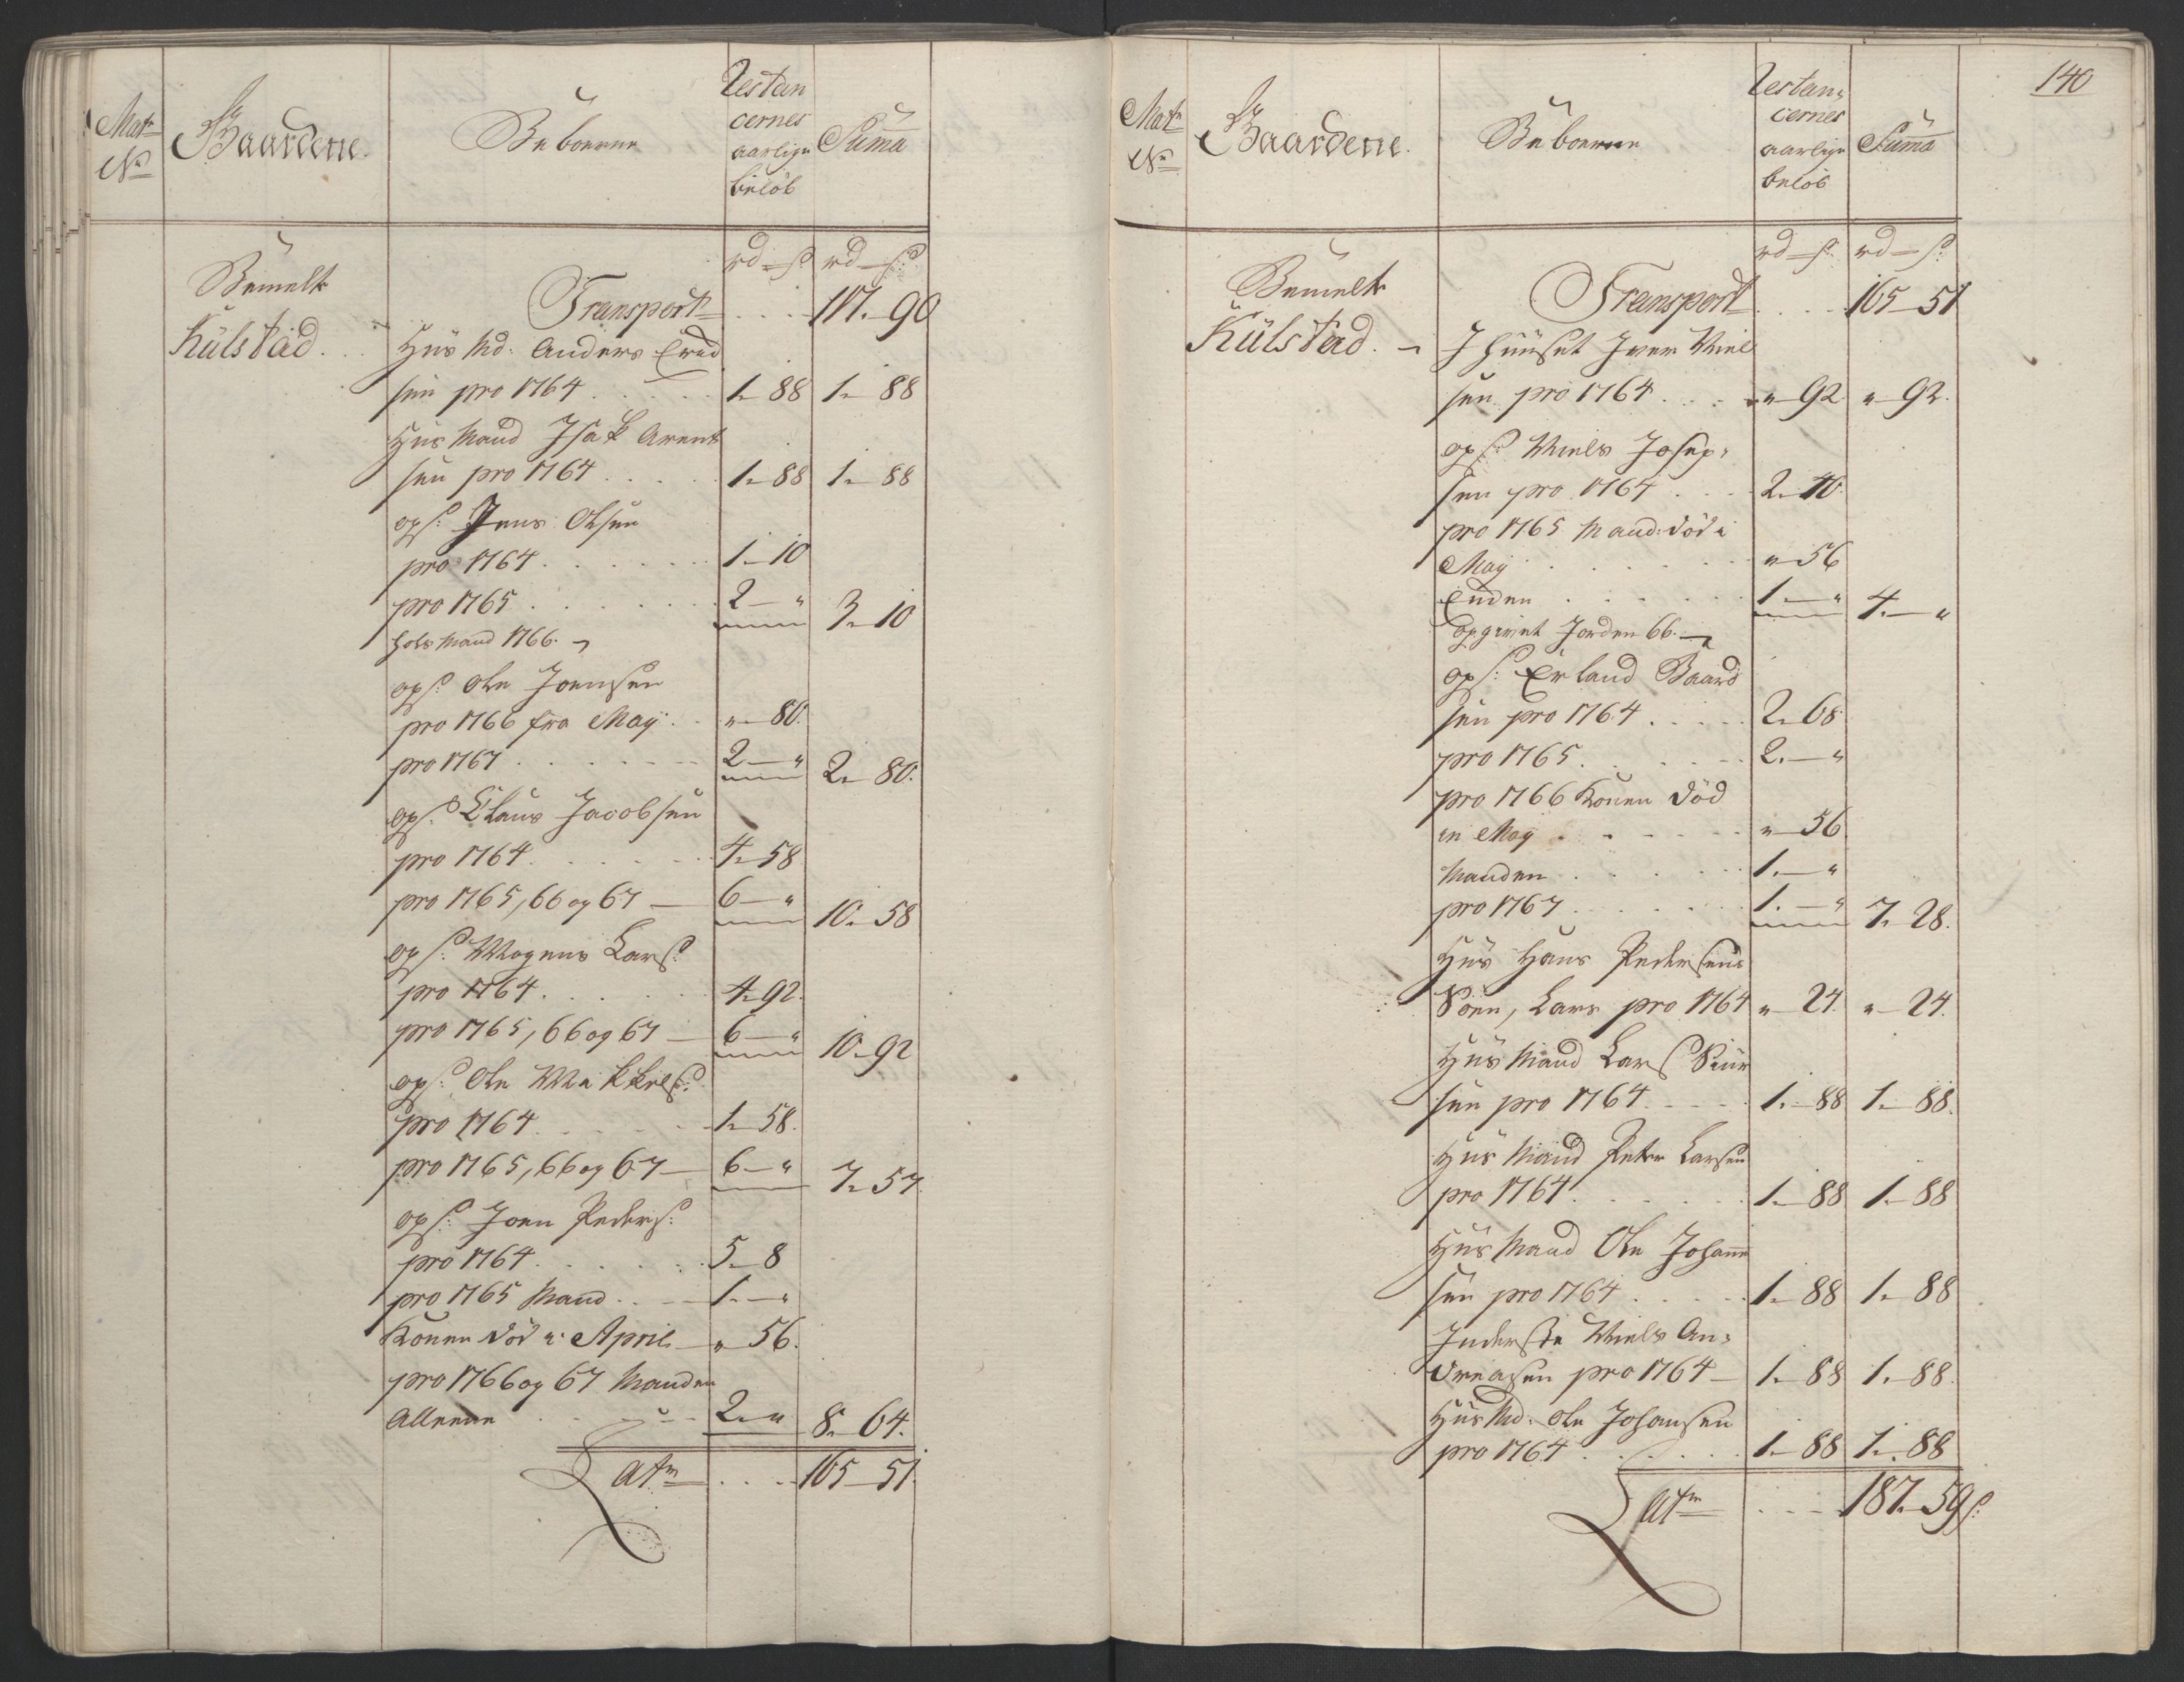 Mat:
No
Gaardene.
Beboerne
Restan
cernes
aarlige
beløb
Suma
rd - s: rd - s:
Bemelte
Kulstad. . .
Transport . . . 117. 90
Huus Md: Anders Erich
sen pro 1764 . . . . . 1. 88 1. 88
Huus Mand Isak Arent
sen pro 1764 . . . . . 1. 88 1. 88
ops: Jens Olsen
pro 1764 . . . . . . 1. 10
pro 1765 . . . . . . 2 — " 3. 10
Mand 1766.
ops: Ole Joensen
pro 1766 fra Maÿ . . " 80.
pro 1767 . . . . . . 2 — " 2. 80.
ops: Claus Jacobsen
pro 1764 . . . . . . 4. 58
pro 1765, 66 og 67 — 6 — " 10. 58
ops: Mogens Lars:
pro 1764 . . . . . . 4. 92.
pro 1765, 66 og 67 — 6 — " 10. 92
ops: Ole Mikkels:
pro 1764 . . . . . . 1. 58.
pro 1765, 66 og 67 — 6 — " 7. 57.
ops: Joen Peders:
pro 1764 . . . . . . 5. 8
pro 1765 Mand . . — 1. — "
Konen død i April — " 56.
pro 1766 og 67 Manden
Alleene . . . . 2. " 8. 64.
At . . . . 165 — 51.
140
Mat:
No
Gaardene.
Beboerne
Restan,
cernes
aarlige
beløb
Suma
rd — s: rd — s:
Bemelte
Kulstad. —
Transport . . . . 165 — 51
I Huuset Iver Niel
sen pro 1764 . . . . " 92 " 92.
ops: Niels Josep,
sen pro 1764 . . . 2. 40.
pro 1765 Mand: død i
Maÿ . . . . . . " 56
Enden . . . . . . 1. — " 4. — "
opgivet Jorden 66. —
ops: Erland Baard
sen pro 1764 . . . . . 2. 68
pro 1765 . . . . . . 2. — "
pro 1766 Konen død
in Maÿ . . . . . . " 56
Manden . . . . . . 1. — "
pro 1767 . . . . . . 1. — " 7. 28.
Huus Hans Pedersens
Søn, Lars pro 1764 " 24. " 24.
Huus Mand Lars Siur
sen pro 1764 . . . . 1. 88 1. 88.
Huus Mand Peter Larsen
pro 1764 . . . . . . 1. 88 1. 88
Huus Mand Ole Johanne
sen pro 1764 . . . . 1. 88 1. 88
Inderste Niels An,
dreasen pro 1764 — 1. 88 1. 88.
Huus Md: Ole Johansen
pro 1764 . . . . . . 1. 88 1. 88
At . . . . 187. 59 s: